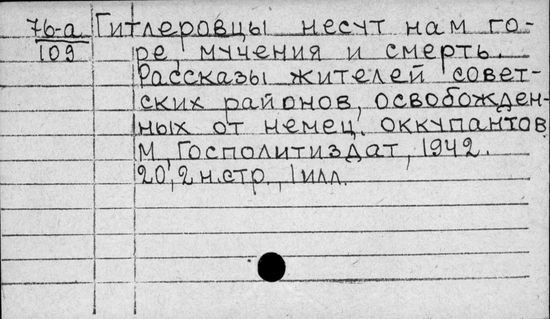 76-а Гитлеровцы несут нам го-
109 ре, мучения и смерть.
Рассказы жителей совет-
ских районов, освобожден-
ных от немец. оккупантов
М, Госполитиздат, 1942.
20, 2 н.стр., 1 илл.